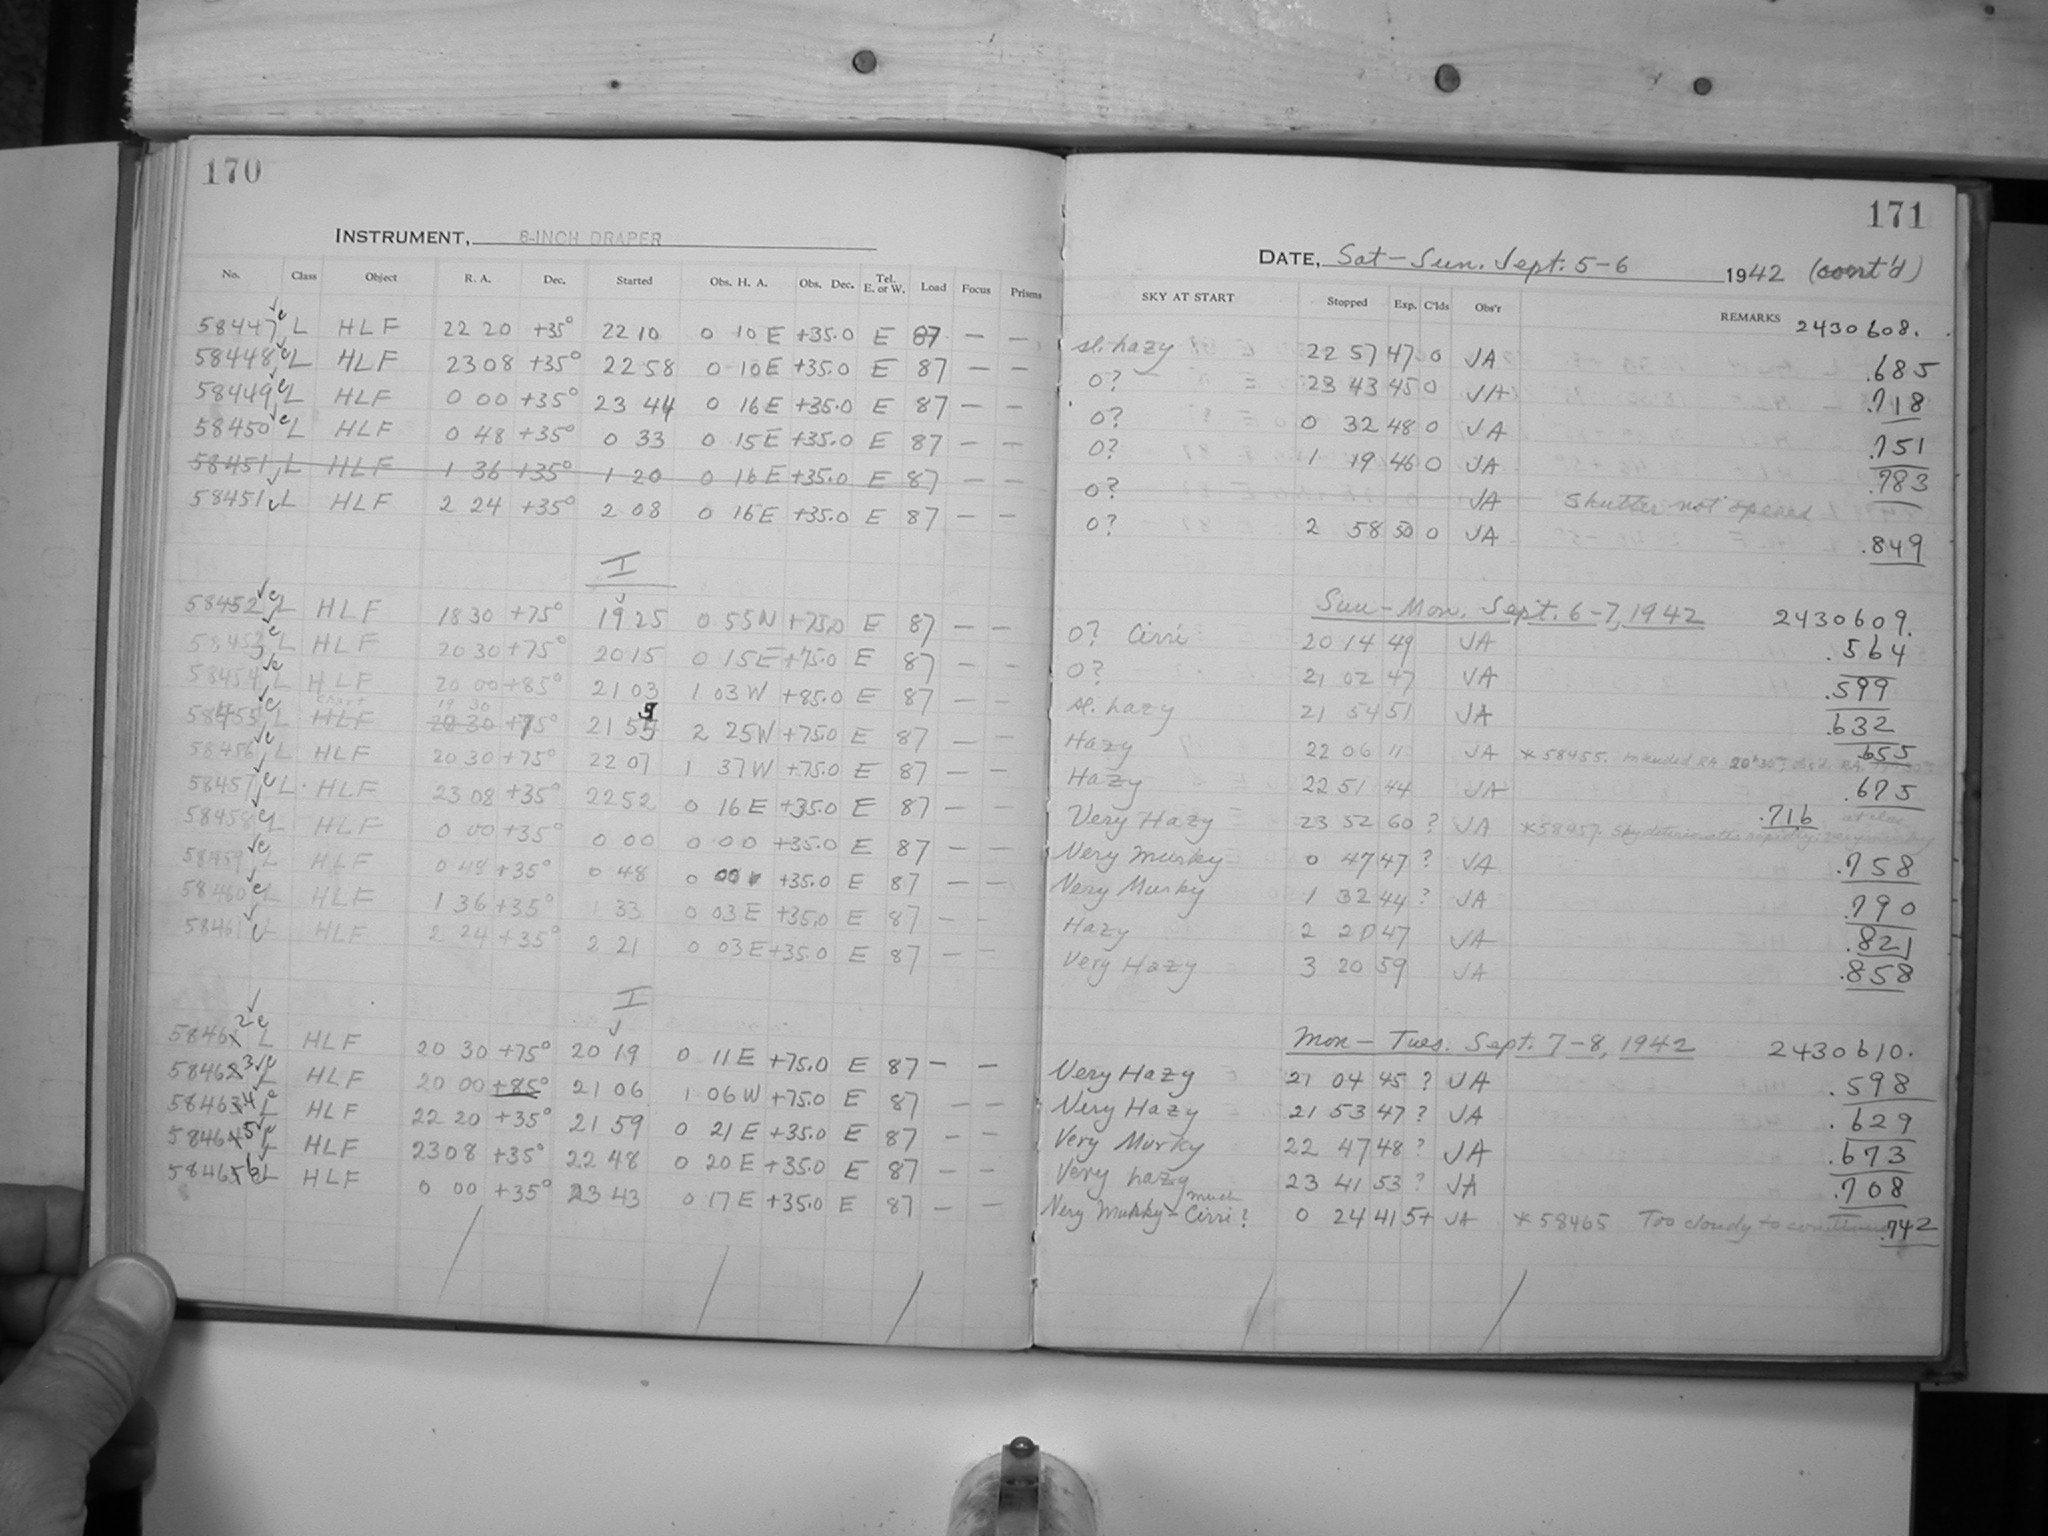 170
INSTRUMENT, 8-INCH DRAPER
No. Class Object R. A. Dec. Started Obs. H. A. Obs. Dec. Tel. E. or W. Load Focus Prisms
58447 L HLF 22 20 +35° 22 10 0 10 E +35.0 E 87 — —
58448 L HLF 23 08 +35° 22 58 0 10 E +35.0 E 87 — —
58449 L HLF 0 00 +35° 23 44 0 16 E +35.0 E 87 — —
58450 L HLF 0 48 +35° 0 33 0 15 E +35.0 E 87 — —
58451 L HLF 1 36 +35° 1 20 0 16 E +35.0 E 87 — —
58451 L HLF 2 24 +35° 2 08 0 16 E +35.0 E 87 — —
I
58452 L HLF 18 30 +75° 19 25 0 55 W +75.0 E 87 — —
58453 L HLF 20 30 +75° 20 15 0 15 E +75.0 E 87 — —
58454 L HLF 20 00 +85° 21 03 1 03 W +85.0 E 87 — —
58455 L HLF 19 30 20 30 +75° 21 55 2 25 W +75.0 E 87 — —
58456 L HLF 20 30 +75° 22 07 1 37 W +75.0 E 87 — —
58457 L HLF 23 08 +35° 22 52 0 16 E +35.0 E 87 — —
58458 L HLF 0 00 +35° 0 00 0 00 +35.0 E 87 — —
58459 L HLF 0 48 +35° 0 48 0 00 +35.0 E 87 — —
58460 L HLF 1 36 +35° 1 33 0 03 E +35.0 E 87 — —
58461 L HLF 2 24 +35° 2 21 0 03 E +35.0 E 87 — —
I
58462 L HLF 20 30 +75° 20 19 0 11 E +75.0 E 87 — —
58463 L HLF 20 00 +85° 21 06 1 06 W +75.0 E 87 — —
58464 L HLF 22 20 +35° 21 59 0 21 E +35.0 E 87 — —
58465 L HLF 23 08 +35° 22 48 0 20 E +35.0 E 87 — —
58466 L HLF 0 00 +35° 23 43 0 17 E +35.0 E 87 — —
171
DATE, Sat-Sun. Sept. 5-6 1942 (cont'd)
SKY AT START Stopped Exp. C'lds Obs'r REMARKS 2430608.
sl. hazy 22 57 47 0 JA .685
0? 23 43 45 0 JA .718
0? 0 32 48 0 JA .751
0? 1 19 46 0 JA .783
0? JA Shutter not opened
0? 2 58 50 0 JA .849
Sun-Mon. Sept. 6-7, 1942 2430609.
0? Cirri 20 14 49 JA .564
0? 21 02 47 JA .599
sl. hazy 21 54 51 JA .632
Hazy 22 06 11 JA *58455. intended RA 20h30m RA. .655
Hazy 22 51 44 JA .675
Very Hazy 23 52 60 ? JA *58457. Sky deteriorates rapidly; very murky at close .716
Very Murky 0 47 47 ? JA .758
Very Murky 1 32 44 ? JA .790
Hazy 2 20 47 JA .821
Very Hazy 3 20 59 JA .858
Mon-Tues. Sept. 7-8, 1942 2430610.
Very Hazy 21 04 45 ? JA .598
Very Hazy 21 53 47 ? JA .629
Very Murky 22 47 48 ? JA .673
Very hazy 23 41 53 ? JA .708
Very Murky - much Cirri? 0 24 41 5+ JA *58465 Too cloudy to continue .742